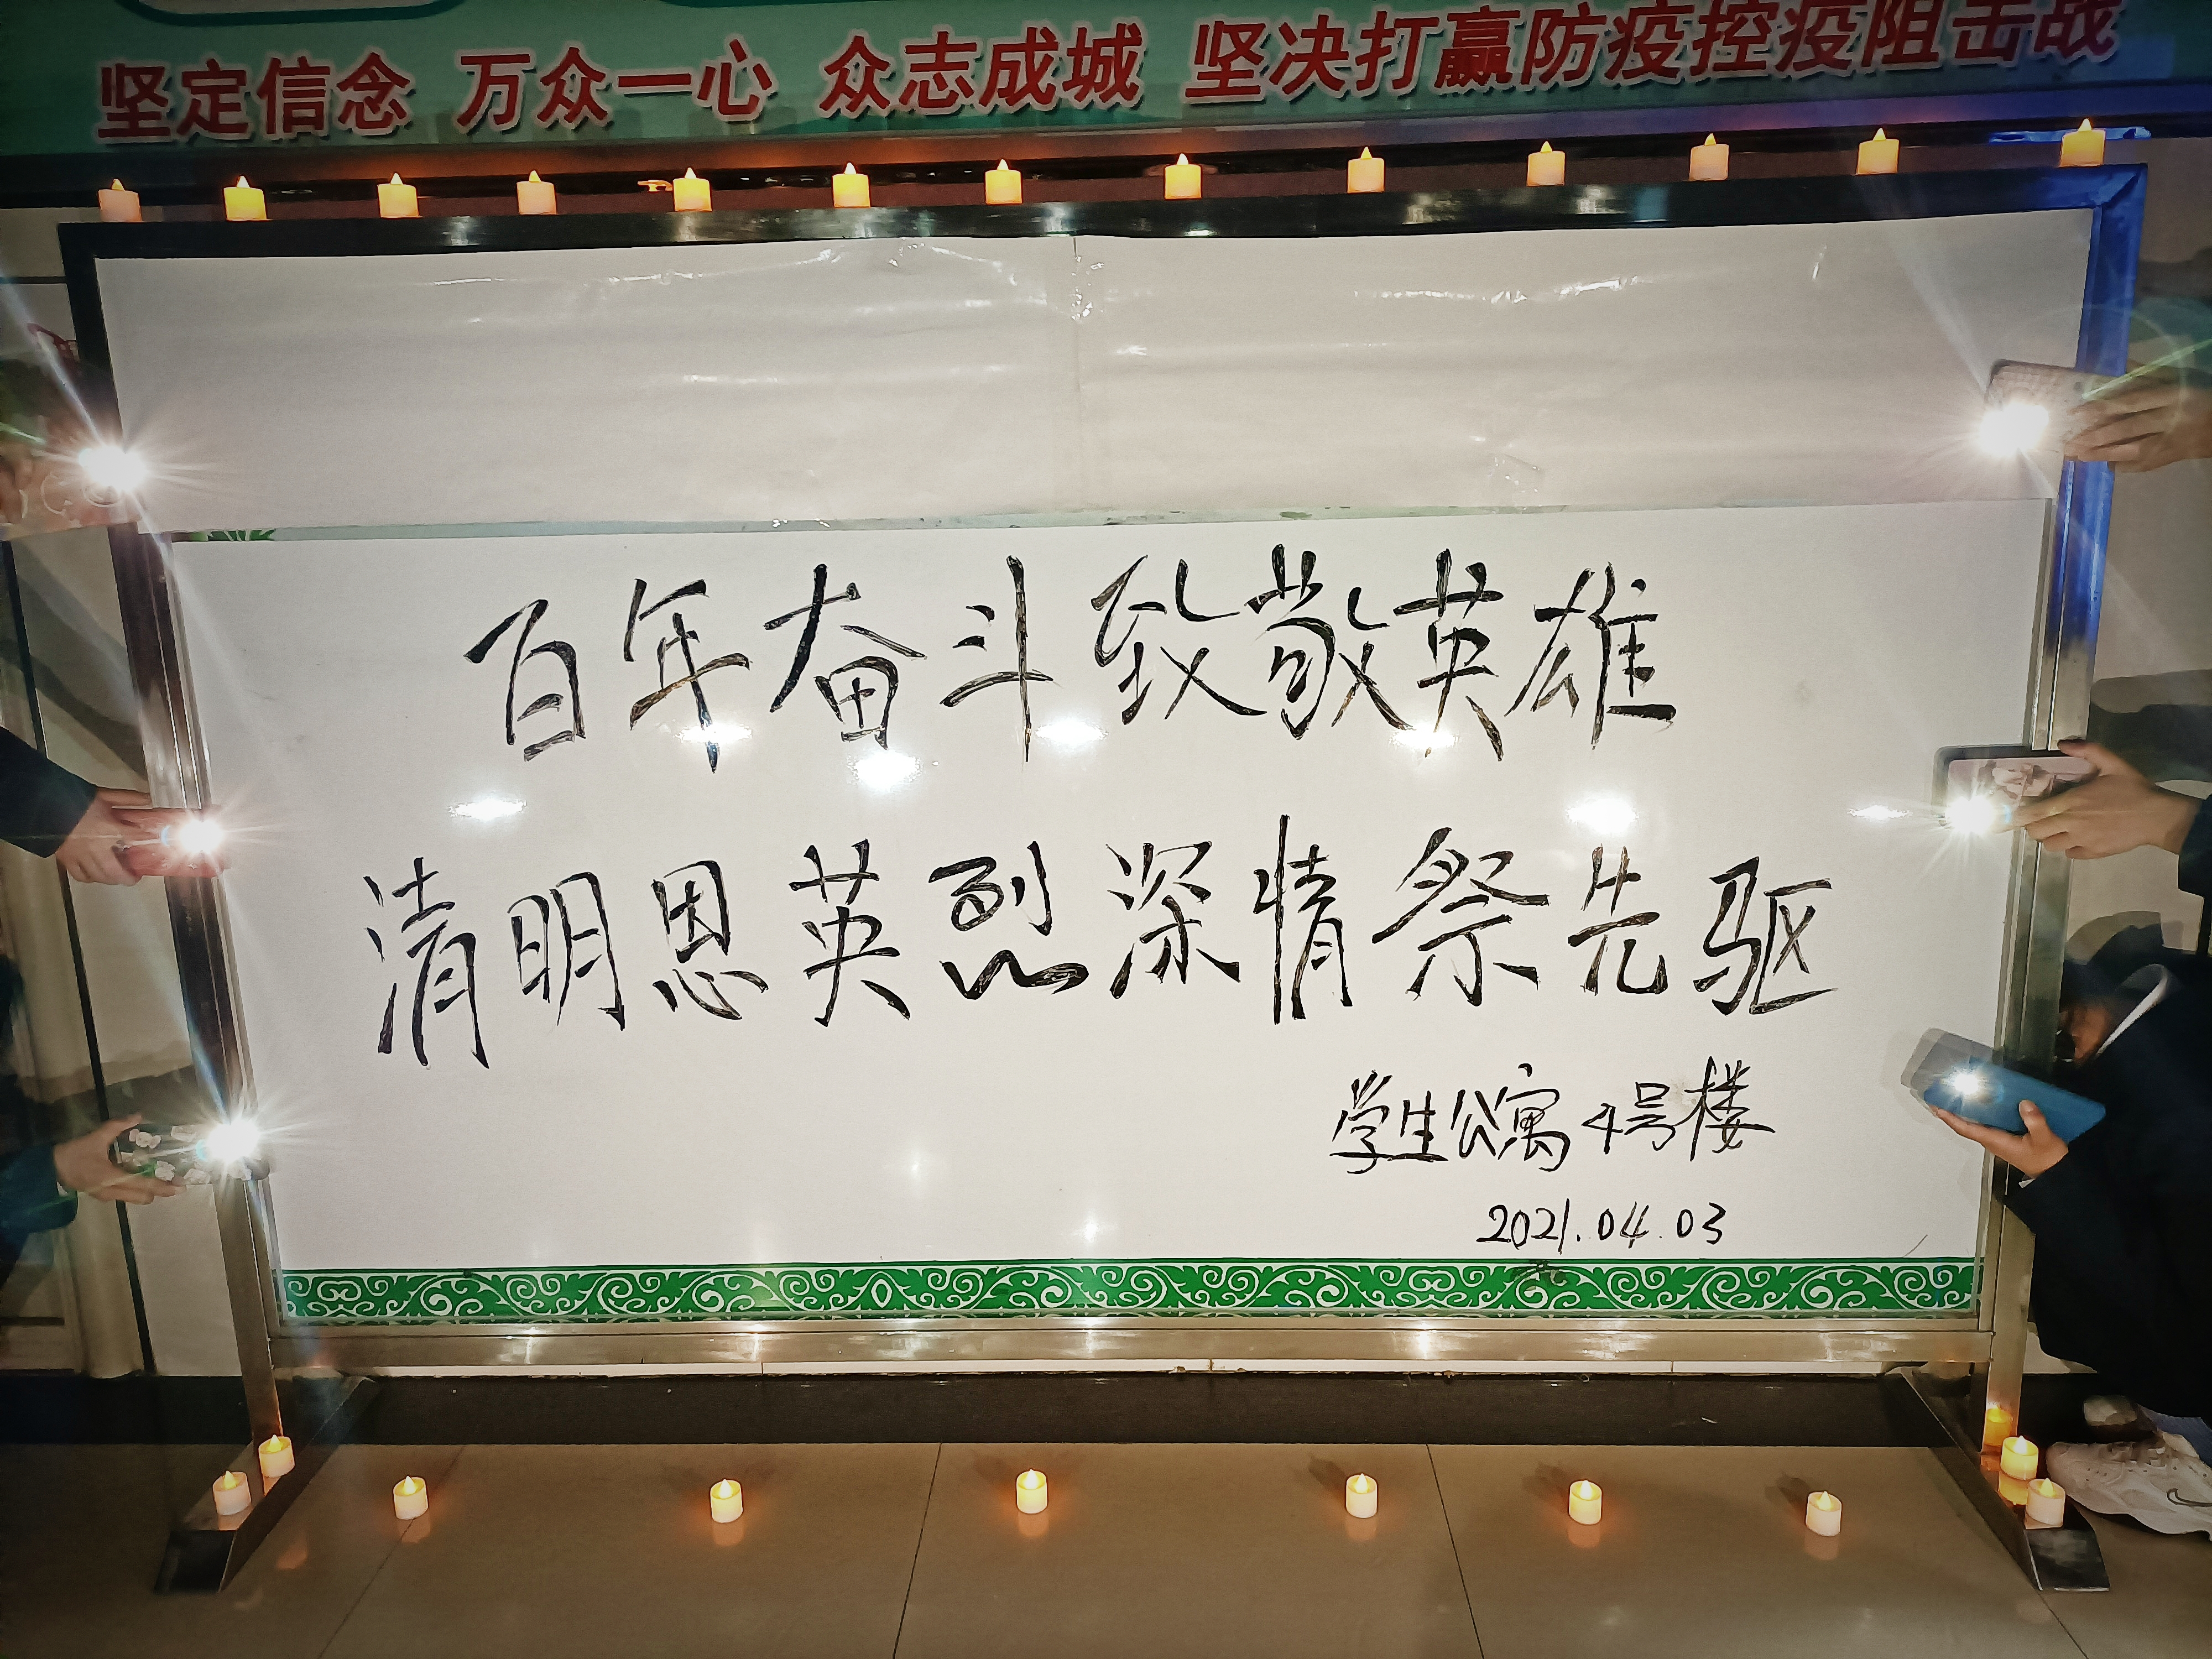 坚定信念 万众一心 众志成城 坚决打赢防疫控疫阻击战
百年奋斗致敬英雄
清明恩英烈深情祭先驱
学生公寓4号楼
2021.04.03